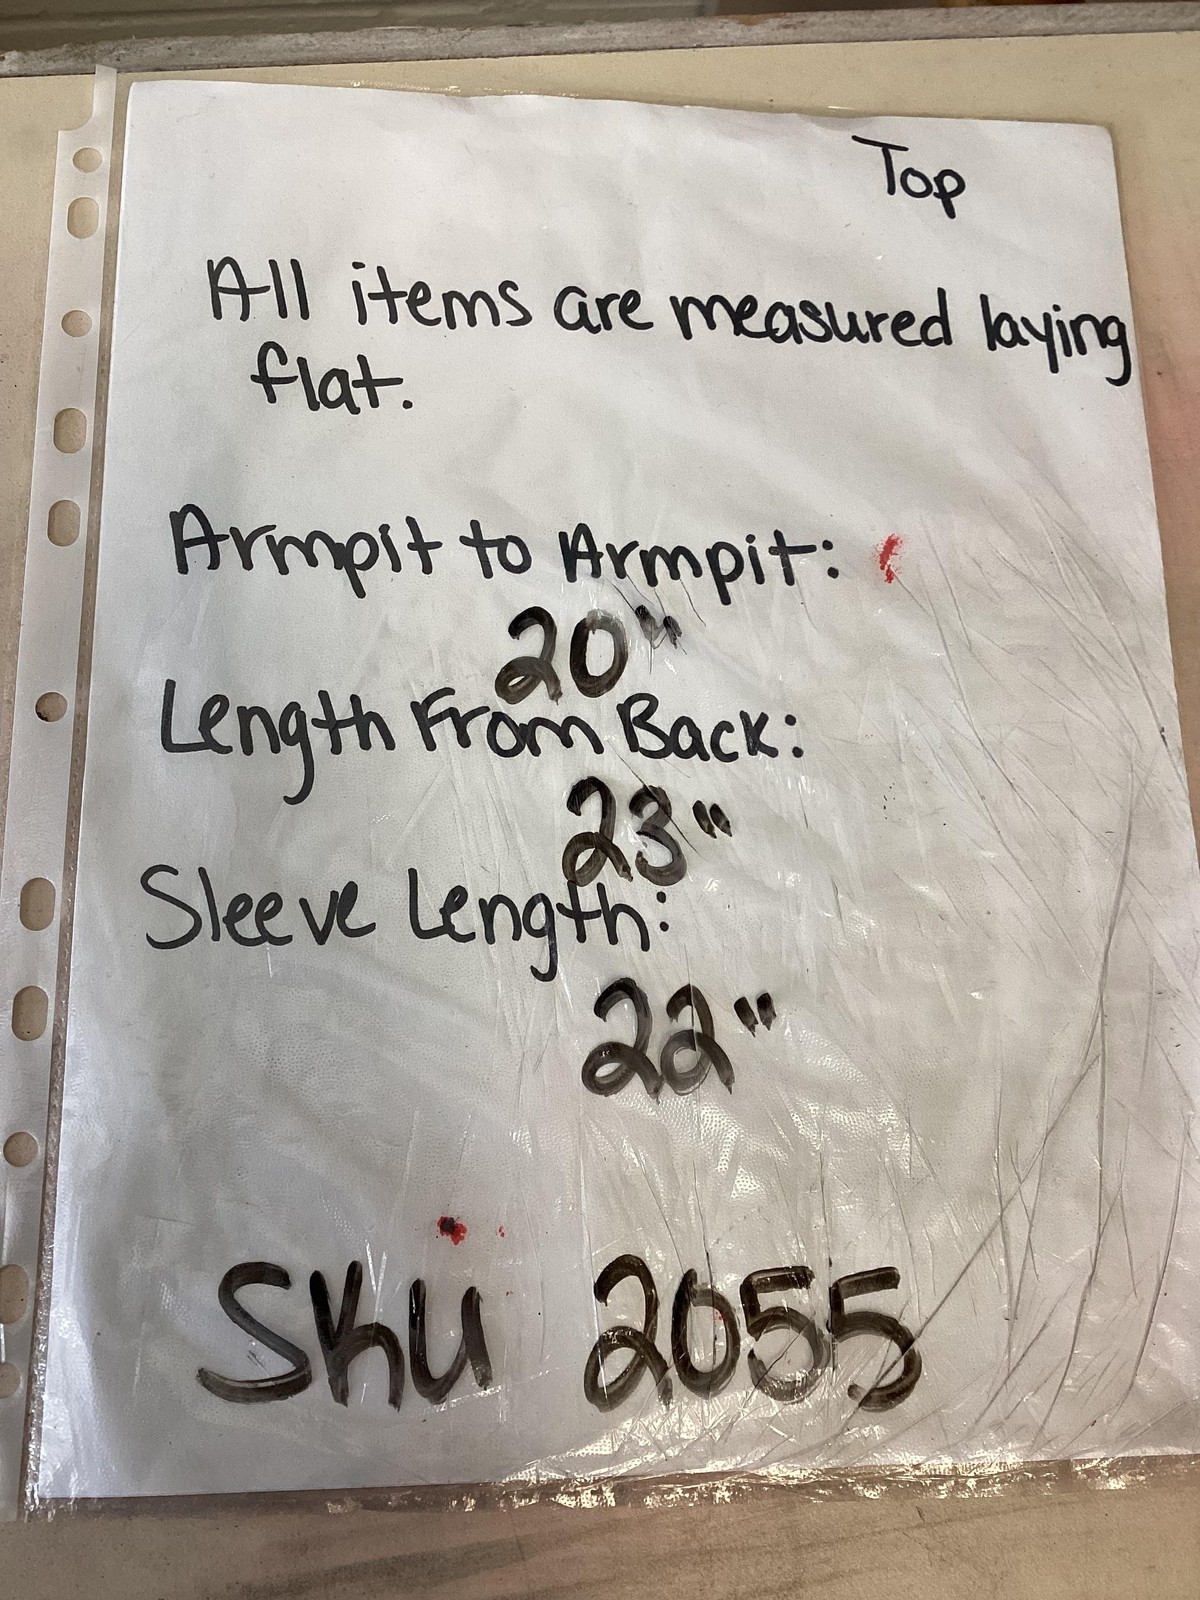 Top
All items are measured laying
flat.
Armpit to Armpit:
20"
Length From Back:
23"
Sleeve Length:
22"
SKU 2055